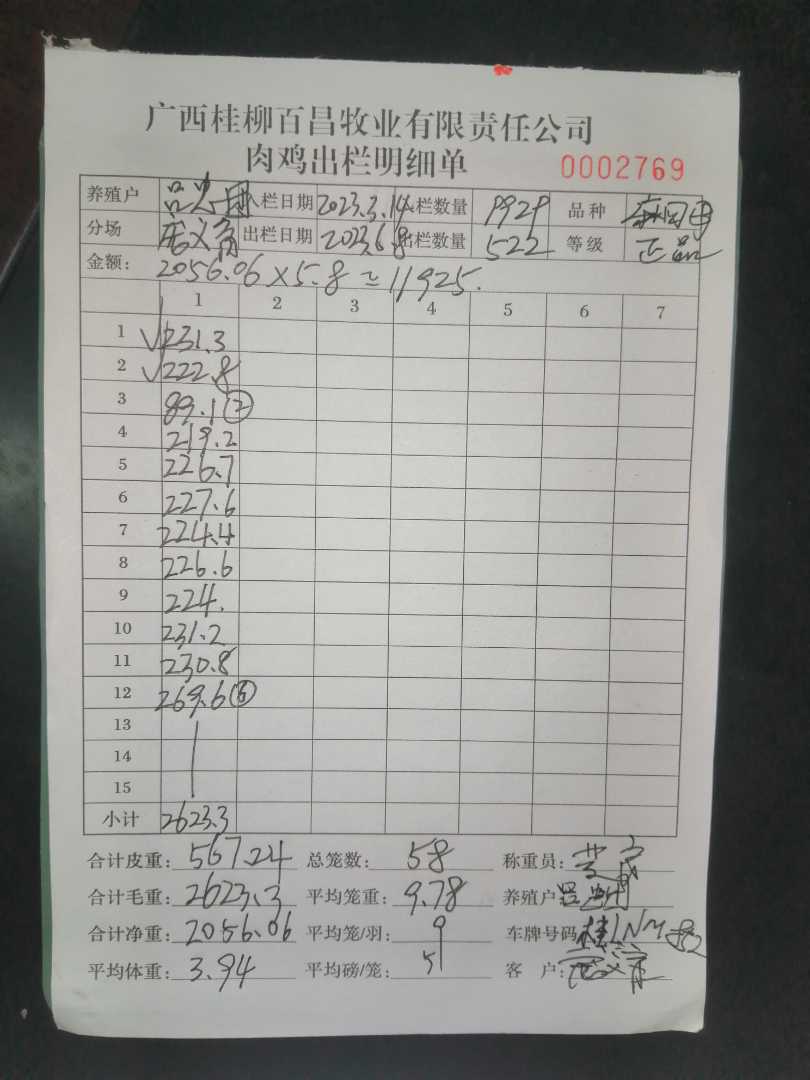 广西桂柳百昌牧业有限责任公司
肉鸡出栏明细单 0002769
养殖户 入栏日期 2023.3.14 入栏数量 9929 品种
分场 出栏日期 2023.6.8 出栏数量 522 等级 正品
金额: 2056.06×5.8=11925.
1 2 3 4 5 6 7
1 √231.3
2 √222.8
3 89.1②
4 219.2
5 226.7
6 227.6
7 224.4
8 226.6
9 224.
10 231.2
11 230.8
12 269.6⑥
13
14
15
小计 2623.3
合计皮重: 567.24 总笼数: 58 称重员:
合计毛重: 2623.3 平均笼重: 9.78 养殖户:
合计净重: 2056.06 平均笼/羽: 9 车牌号码:
平均体重: 3.94 平均磅/笼: 5 客 户: